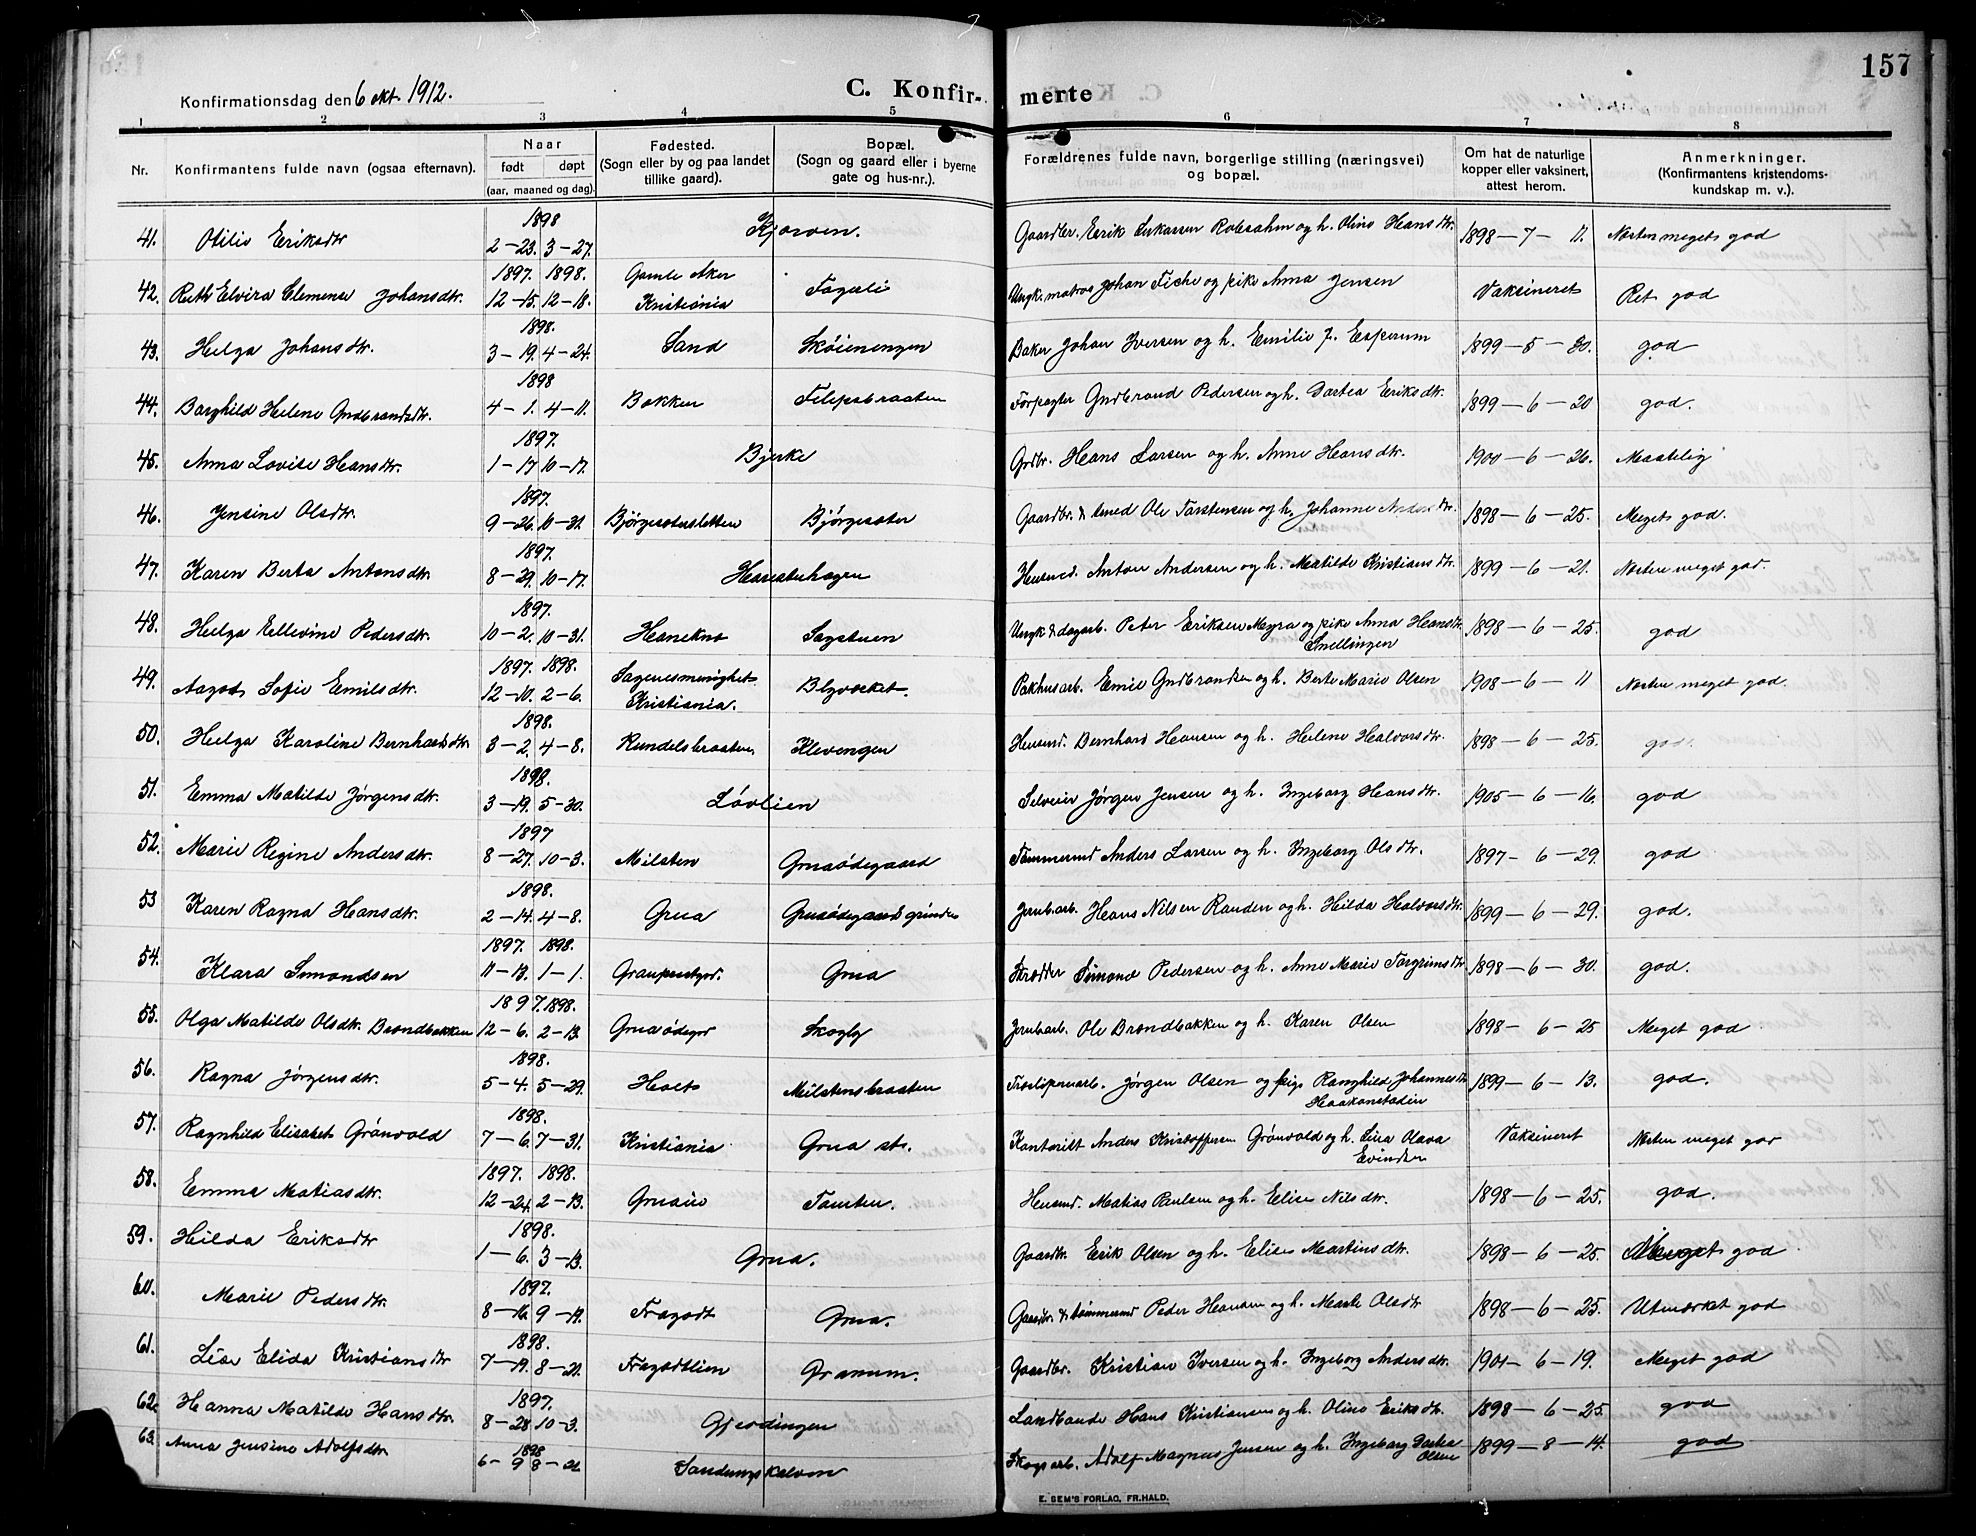 157
Konfirmationsdag den 6 okt. 1912.
C. Konfir- merte
1 2 3 4 5 6 7 8
Nr. Konfirmantens fulde navn (ogsaa efternavn). Naar født døpt (aar, maaned og dag).
Fødested. (Sogn eller by og paa landet tillike gaard).
Bopæl. (Sogn og gaard eller i byerne gate og hus-nr.).
Forældrenes fulde navn, borgerlige stilling (næringsvei) og bopæl.
Om hat de naturlige kopper eller vaksinert, attest herom.
Anmerkninger. (Konfirmantens kristendoms- kundskap m. v.).
41. Otilie Eriksdtr 1898 2-23. 3-27. Kjorven. Gaardbr. Erik og h. Oline Hansdtr. 1898-7-11. Næsten meget god
42. Ruth Elvira Clemense Johansdtr. 1897. 12-15. 1898. 12-18. Gamle Aker Kristiania Fagerli Ungk. matros Johan Fiche og pike Anna Jensen Vaksineret Ret god
43. Helga Johansdtr. 1898. 3-19. 4-24. Sand Skøienengen Baker Johan Iversen og h. Emilie J. Esperum 1899-5-30. god
44. Borghild Helene Gudbrandsdtr. 1898 4-1. 4-11. Bakken Filipsbraaten Forpagter Gudbrand Pedersen og h. Dortea Eriksdtr. 1899-6-20 god.
45. Anna Lovise Hansdtr. 1897. 1-17 10-17. Bjerke Grdbr. Hans Larsen og h. Anne Hansdtr. 1900-6-26. Maatelig
46. Jensine Olsdtr. 1897. 9-26. 10-31. Bjørgeseterslетten Bjørgeseter Gaardbr. & smed Ole Torstensen og h. Johanne Andersdtr. 1898-6-25. Meget god.
47. Karen Berta Antonsdtr. 1897. 8-29. 10-17. Haresterhagen Husmd. Anton Andersen og h. Matilde Kristiansdtr. 1899-6-21. Næsten meget god.
48. Helga Ellevine Pedersdtr. 1897. 10-2. 10-31. Hanekno Sagstuen Ungk & dagarb. Peter Eriksen Myra og pike Anna Hansdtr. Smellingen 1898-6-25. god
49. Aagot Sofie Emilsdtr. 1897. 12-10. 1898. 2-6. Sagenesmenighet Kristiania. Blyverket. Pakhusarb. Emil Gudbrandsen og h. Berte Marie Olsen 1908-6-11 Næsten meget god.
50. Helga Karoline Bernhardsdtr. 1898. 3-2. 4-8. Rundelsbraaten Klevengen Husmd. Bernhard Hansen og h. Helene Halvorsdtr. 1898-6-25. god.
51. Emma Matilde Jørgensdtr. 1898. 3-19. 5-30. Løvlien Selveier Jørgen Jensen og h. Ingeborg Hansdtr. 1905-6-16. god
52. Marie Regine Andersdtr. 1897 8-27. 10-3. Milsten Gruaødegaard Tømmermd Anders Larsen og h. Ingeborg Olsdtr. 1897-6-29. god
53 Karen Ragna Hansdtr. 1898. 2-14. 4-8. Grua Gruaødegaardsgrinden Jernbarb. Hans Nilsen Randen og h. Hilda Halvorsdtr. 1899-6-29. god.
54. Klara Simondsen 1897. 11-13. 1898. 1-1. Grua Skrædder Simond Pedersen og h. Anne Marie Torgrimsdtr 1898-6-30. god.
55. Olga Matilde Olsdtr. Brændbakken 1897. 12-6. 1898. 2-13. Gruaødegrd Skogly Jernbarb. Ole Brændbakken og h. Karen Olsen 1898-6-25 Meget god
56. Ragna Jørgensdtr. 1898. 5-4. 5-29. Holt Milstensbraaten Træsliperiarb. Jørgen Olsen og pige Ranghild Johannesdtr Haakonstadin 1899-6-13. god.
57. Ragnhild Elisabet Grønvold 1898. 7-6. 7-31. Kristiania Grua st. Kontorist Anders Kristoffersen Grønvold og h. Lina Olava Evindsen Vaksineret Næsten meget god
58. Emma Matiasdtr. 1897. 12-24. 1898. 2-13. Gruaeie Tomten. Husmd. Matias Paulsen og h. Elise Nilsdtr. 1898-6-25. god.
59. Hilda Eriksdtr 1898. 1-6. 3-13. Grua. Gaardbr. Erik Olsen og h. Elise Martinsdtr. 1898-6-25. Meget god
60. Marie Pedersdtr. 1897. 8-16. 9-19. Fragodt Grua. Gaardbr. & tømmermd Peder Hansen og h. Marte Olsdtr 1898-6-25. Utmerket god
61. Lise Elida Kristiansdtr 1898. 7-19. 8-21. Fragodtlien Granum. Gaardbr. Kristian Iversen og h. Ingeborg Andersdtr. 1901-6-19. Meget god
62. Hanna Matilde Hansdtr. 1897. 8-28 10-3. Gjerdingen Landhande Hans Kristiansen og h. Oline Eriksdtr. 1898-6-25. god
63. Anna Jensine Adolfsdtr. 1898 6-9 8-21 Sandungskalven Skogsarb. Adolf Magnus Jensen og h. Ingeborg Dortea Olsen 1899-8-14. god
E. SEM'S FORLAG, FR.HALD.